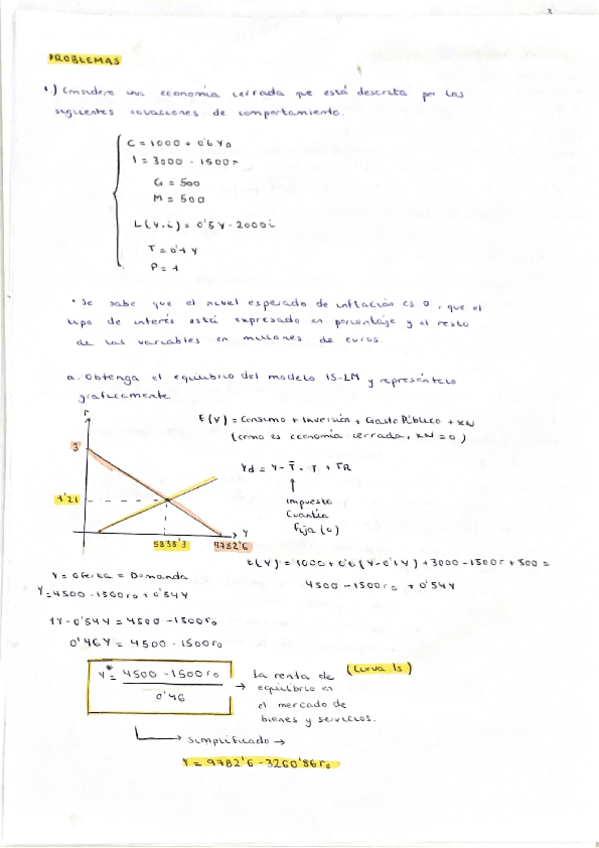 PROBLEMAS
1.) Considere una economía cerrada que está descrita por las
siguientes ecuaciones de comportamiento.
C = 1000 + 0'6 YD
I = 3000 - 1500 r
G = 500
M = 500
L(Y,i) = 0'5 Y - 2000 i
T = 0'1 Y
P = 1
• Se sabe que el nivel esperado de inflación es 0, que el
tipo de interés está expresado en porcentaje y el resto
de las variables en millones de euros.
a. Obtenga el equilibrio del modelo IS-LM y represéntelo
gráficamente.
E(Y) = Consumo + Inversión + Gasto Público + XN
(como es economía cerrada, XN = 0)
Yd = Y - T̄ - T + TR
↑
impuesto
Cuantía
Fija (0)
r
3
1'21
5833'3
9782'6
Y
E(Y) = 1000 + 0'6 (Y - 0'1Y) + 3000 - 1500 r + 500 =
4500 - 1500 r0 + 0'54Y
Y = Oferta = Demanda
Y = 4500 - 1500 r0 + 0'54Y
1Y - 0'54Y = 4500 - 1500 r0
0'46Y = 4500 - 1500 r0
Y* = 4500 - 1500 r0 / 0'46
→ La renta de (curva IS)
equilibrio en
el mercado de
bienes y servicios.
→ simplificado →
Y = 9782'6 - 3260'86 r0